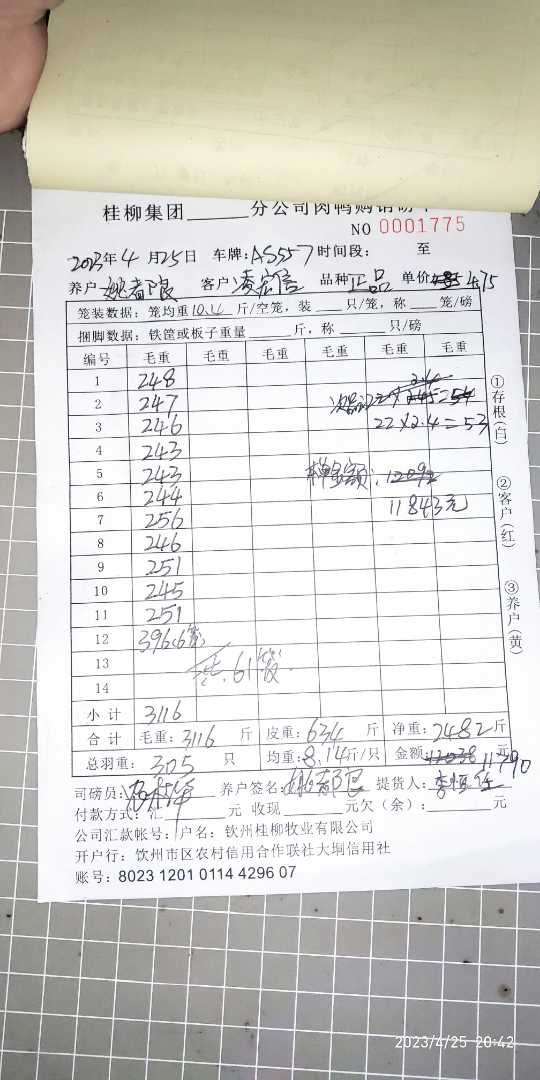 桂柳集团______分公司肉鸭购销磅单
NO 0001775
2023年4月25日 车牌:AS557 时间段: 至
养户 客户 品种 正品 单价 4.75
笼装数据: 笼均重10.4斤/空笼，装___只/笼，称___笼/磅
捆脚数据: 铁筐或板子重量______斤，称______只/磅
编号 毛重 毛重 毛重 毛重 毛重 毛重
1 248
2 247
3 246 22×2.4=53
4 243
5 243 本单金额:
6 244 11843元
7 256
8 246
9 251
10 245
11 251
12 396(6笼)
13 共.61笼
14
小计 3116
合计 毛重:3116 斤 皮重:634 斤 净重:2482斤
总羽重: 305 只 均重:8.14斤/只 金额: 元 11790
司磅员: 养户签名: 提货人:
付款方式:汇______元 收现______元欠(余):______元
公司汇款帐号: 户名: 钦州桂柳牧业有限公司
开户行: 钦州市区农村信用合作联社大垌信用社
账号: 8023 1201 0114 4296 07
①存根(白)
②客户(红)
③养户(黄)
2023/4/25 20:42